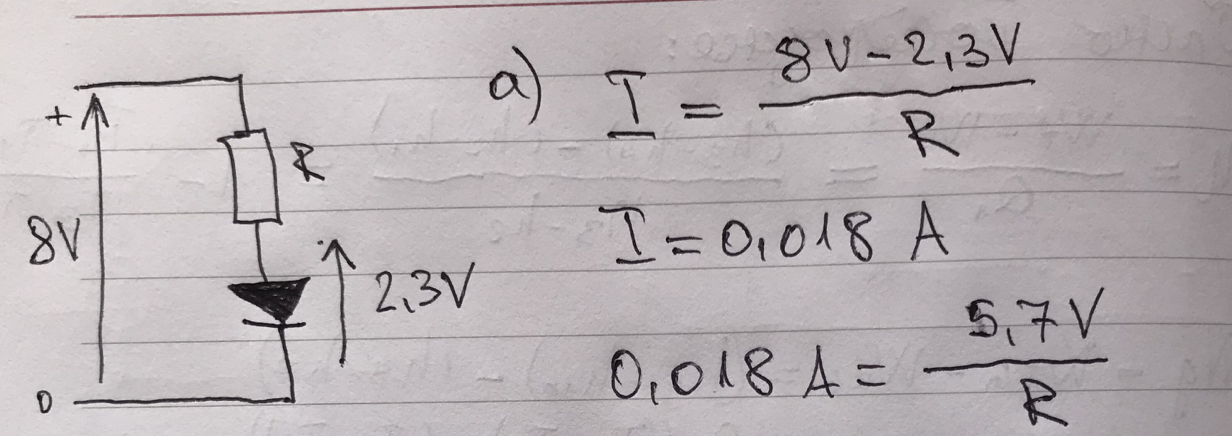 +
8V
0
R
2,3V
a) I = 8V - 2,3V / R
I = 0,018 A
0,018 A = 5,7V / R